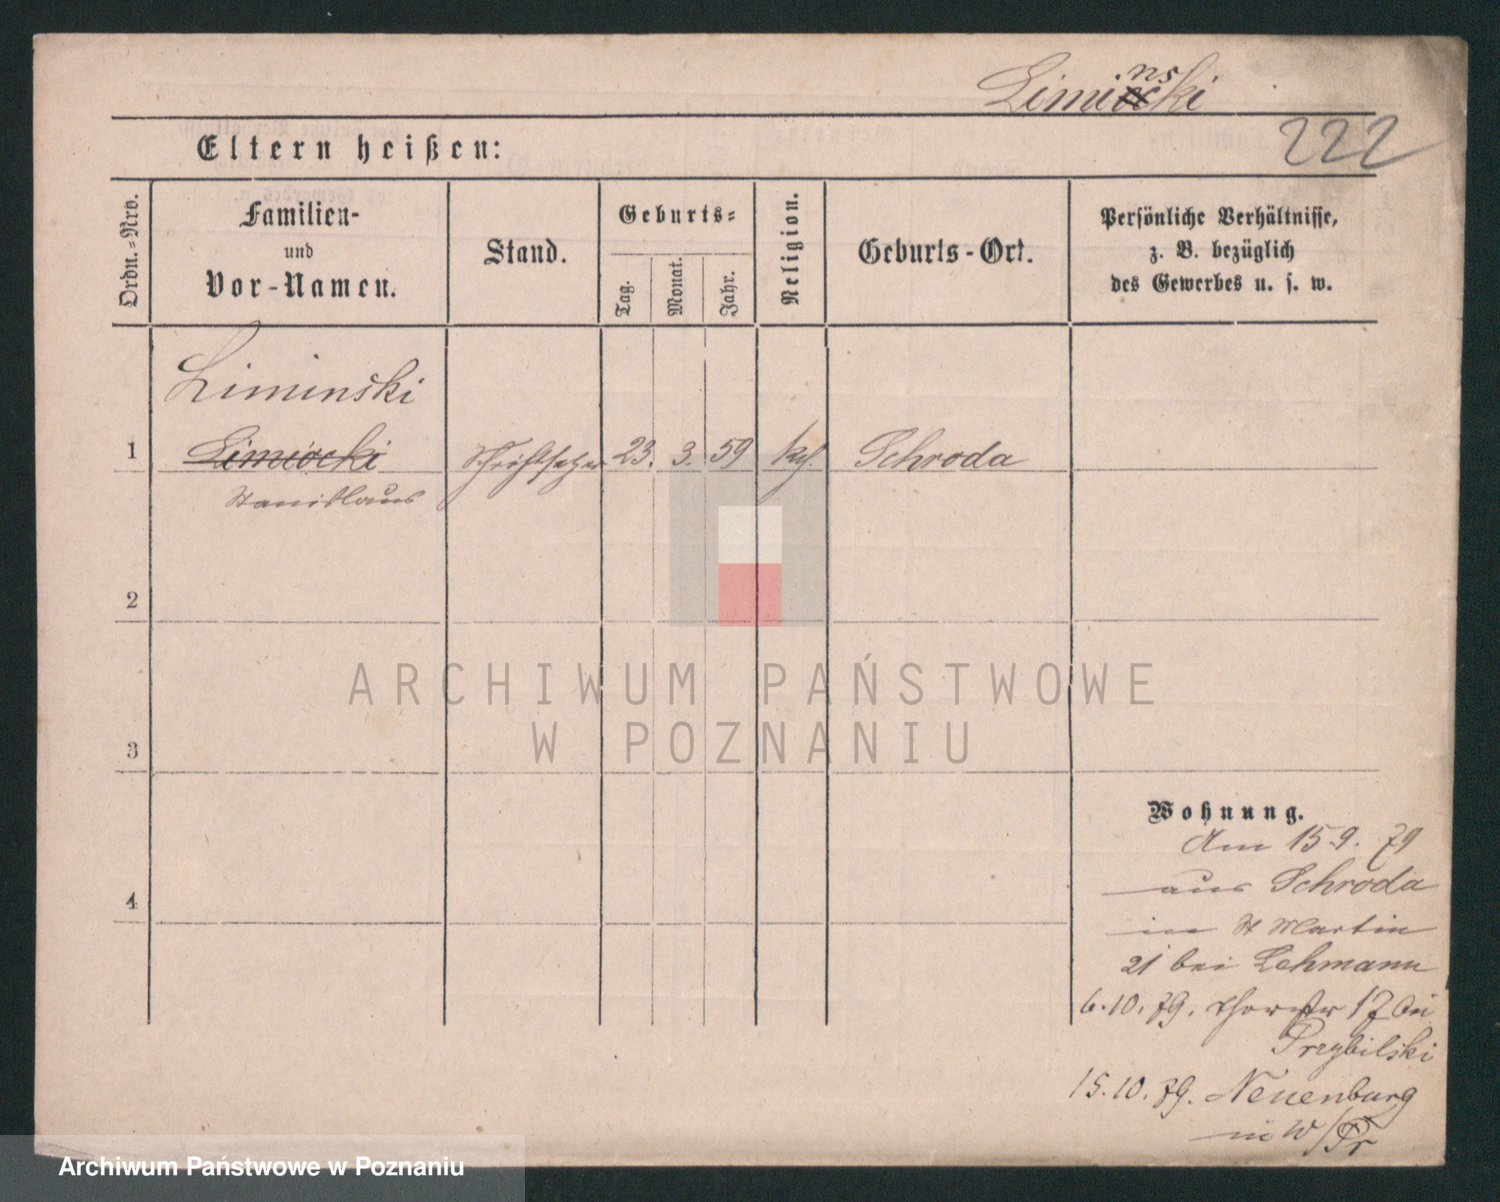 Liminski
222
Eltern heißen:
Ordn.-Nro.
Familien-
und
Vor-Namen.
Stand.
Geburts-
Tag.
Monat.
Jahr.
Religion.
Geburts-Ort.
Persönliche Verhältnisse,
z. B. bezüglich
des Gewerbes u. s. w.
Liminski
1 Limiocki Schriftsetzer 23. 3. 59 kth. Schroda
Stanislaus
2
3
4
Wohnung.
Am 15.9.79
aus Schroda
in St Martin
21 bei Lehmann
6.10.79. 17 bei
Przybilski
15.10.79. Neuenburg
in W/Pr
ARCHIWUM PAŃSTWOWE
W POZNANIU
Archiwum Państwowe w Poznaniu